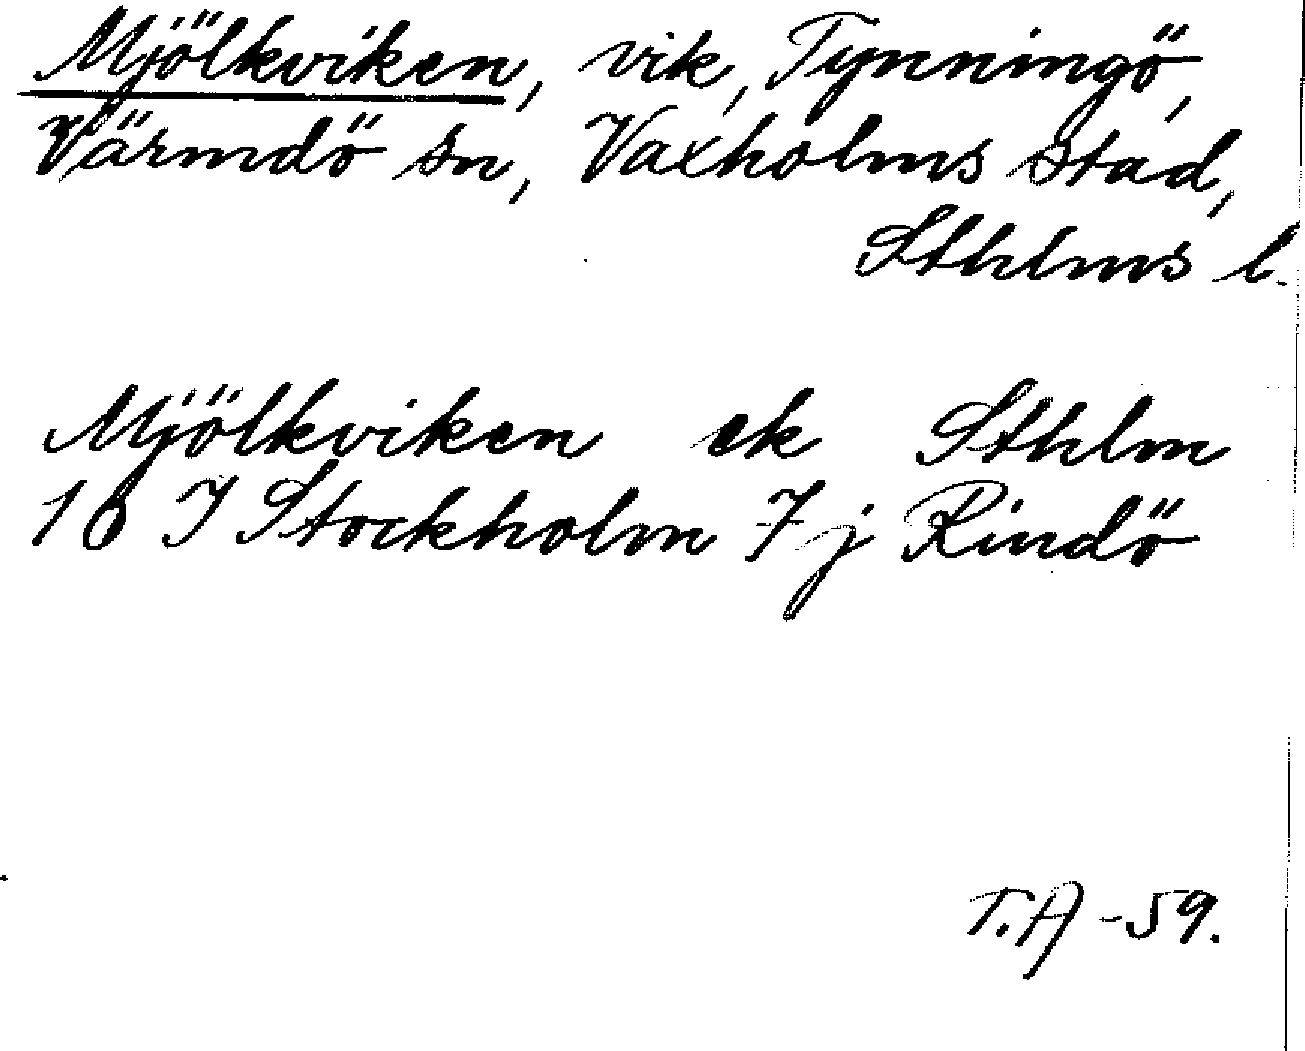 Mjölkviken, vik, Tynningö,
Värmdö sn, Vaxholms stad,
Sthlms l.
Mjölkviken ek Sthlm
10 I Stockholm 7 j Rindö
T.A -59.